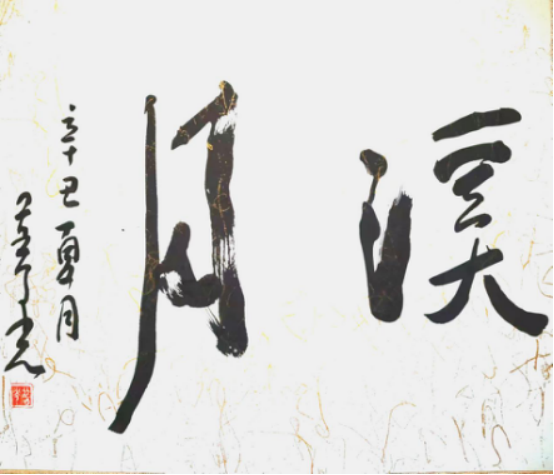 溪月
辛丑夏月